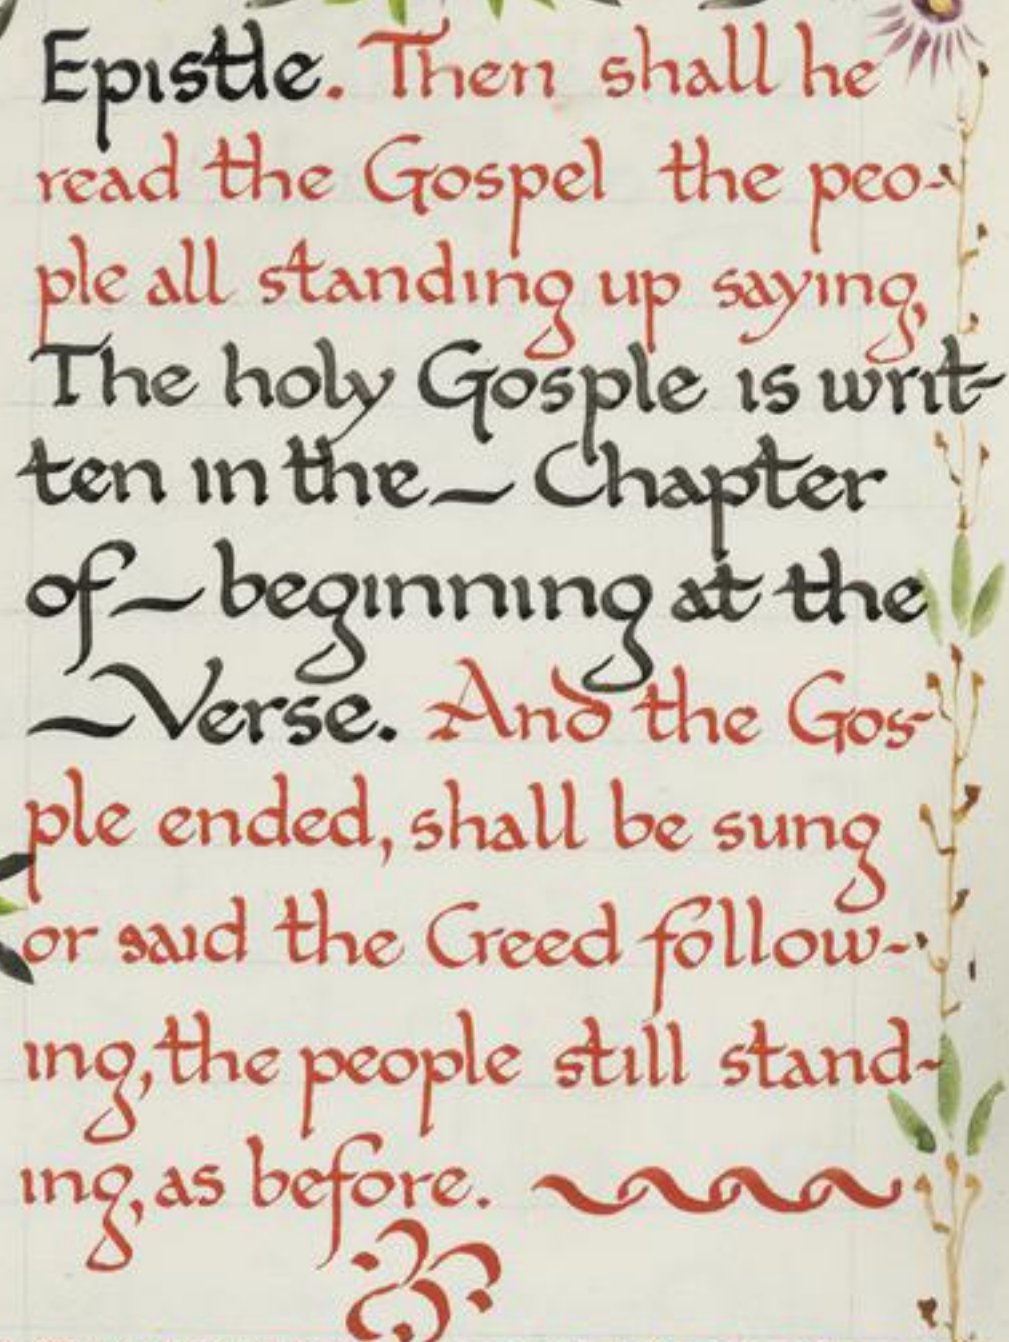 Epistle. Then shall he
read the Gospel the peo-
ple all standing up saying,
The holy Gosple is writ-
ten in the — Chapter
of — beginning at the
— Verse. And the Gos-
ple ended, shall be sung
or said the Creed follow-
ing, the people still stand-
ing, as before.